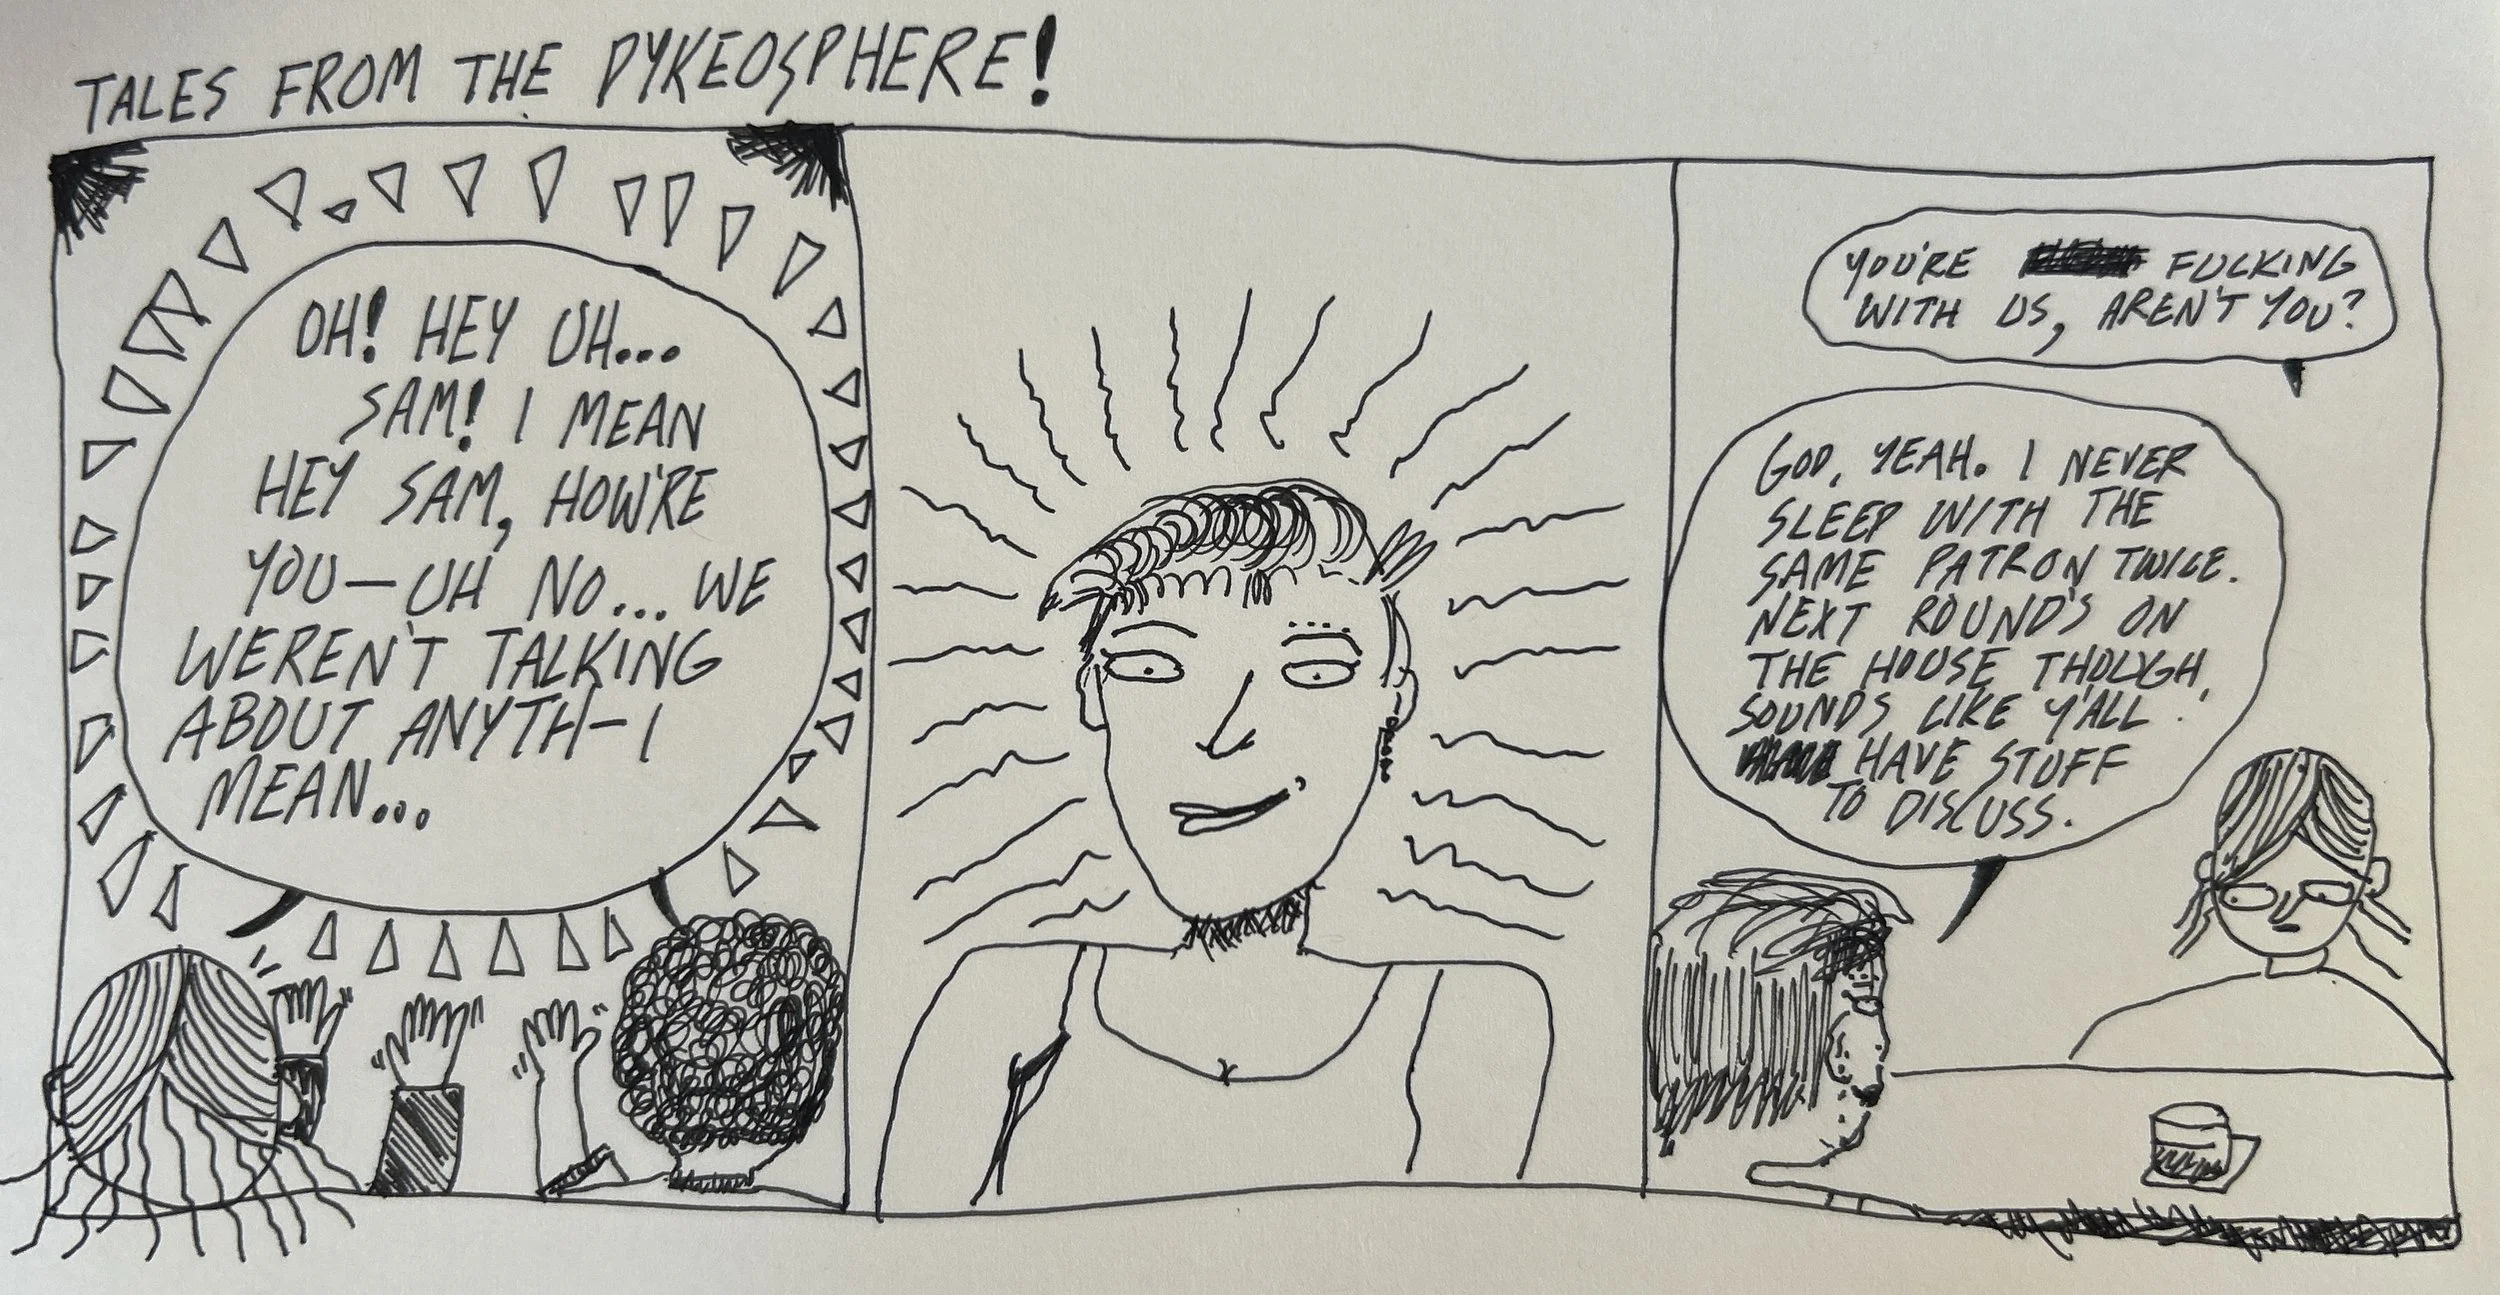 TALES FROM THE DYKEOSPHERE!
OH! HEY UH...
SAM! I MEAN
HEY SAM, HOW'RE
YOU—UH NO... WE
WEREN'T TALKING
ABOUT ANYTH—I
MEAN...
YOU'RE FUCKING
WITH US, AREN'T YOU?
GOD, YEAH. I NEVER
SLEEP WITH THE
SAME PATRON TWICE.
NEXT ROUND'S ON
THE HOUSE THOUGH,
SOUNDS LIKE Y'ALL
HAVE STUFF
TO DISCUSS.